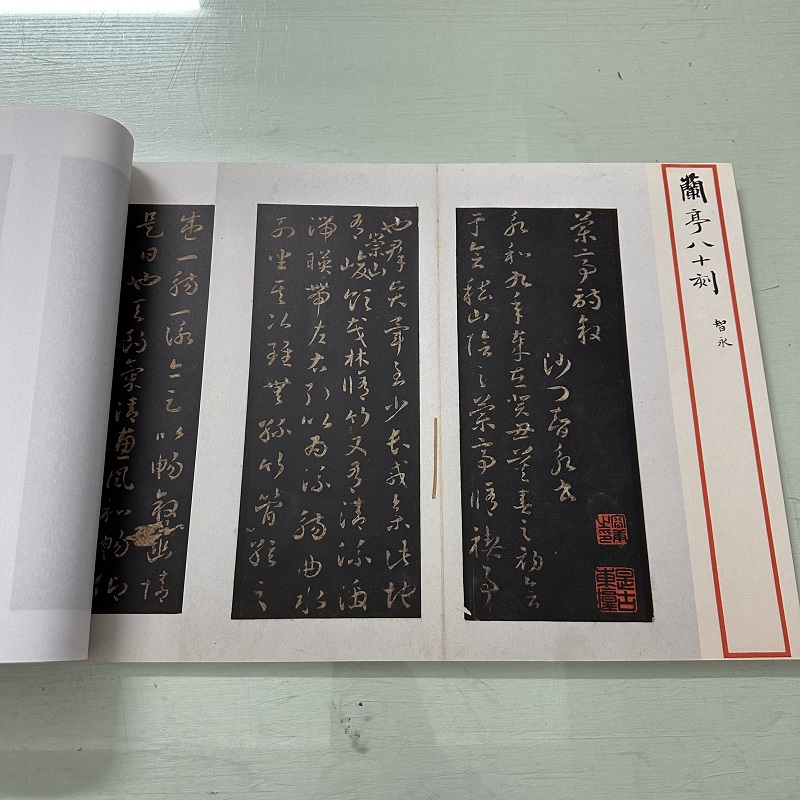 蘭亭八十刻
智永
蘭亭詩叙
沙門智永書
永和九年歲在癸丑暮春之初會
于會稽山陰之蘭亭脩禊事
也羣賢畢至少長咸集此地
有崇山峻領茂林脩竹又有清流激
湍暎帶左右引以為流觴曲水
列坐其次雖無絲竹管絃之
盛一觴一詠亦足以暢叙幽情
是日也天朗氣清惠風和暢仰